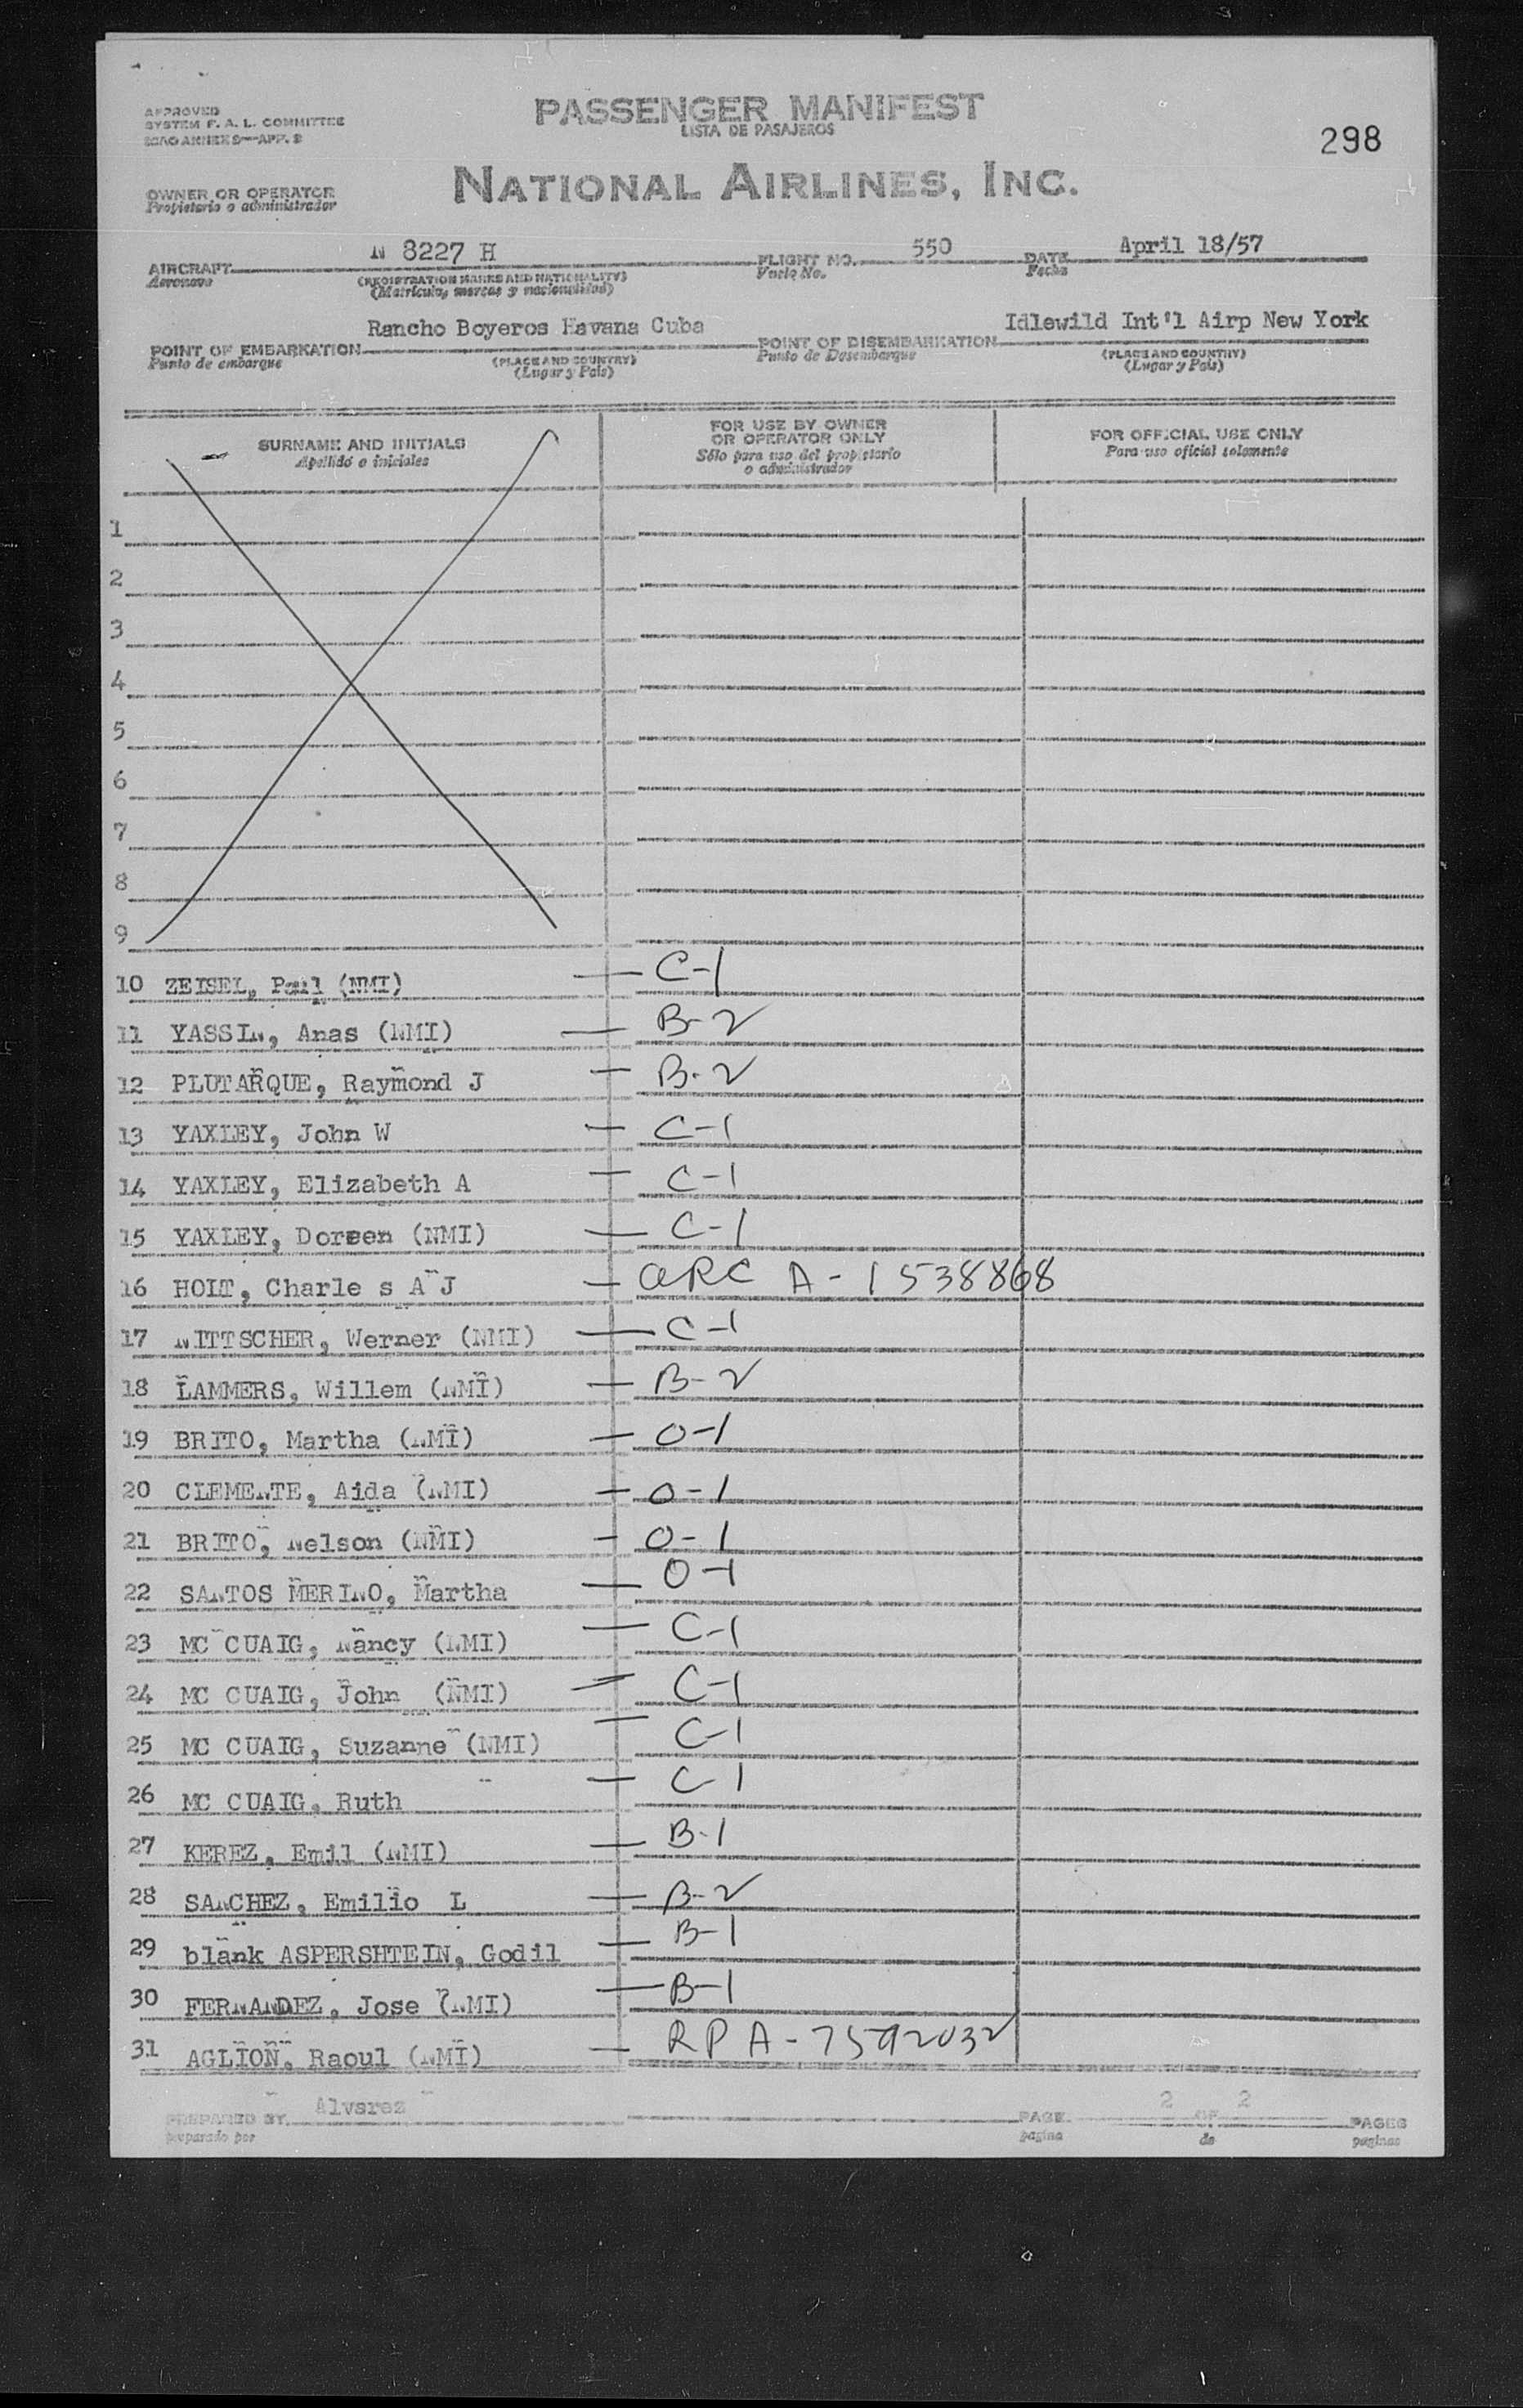 PASSENGER MANIFEST
LISTA DE PASAJEROS
APPROVED
SYSTEM F. A. L. COMMITTEE
ICAO ANNEX 9—APP. 3
298
NATIONAL AIRLINES, INC.
OWNER OR OPERATOR
Propietario o administrador
AIRCRAFT N 8227 H FLIGHT NO. 550 DATE April 18/57
Aeronave (REGISTRATION MARKS AND NATIONALITY) Vuelo No. Fecha
(Matricula, marcas y nacionalidad)
POINT OF EMBARKATION Rancho Boyeros Havana Cuba POINT OF DISEMBARKATION Idlewild Int'l Airp New York
Punto de embarque (PLACE AND COUNTRY) Punto de Desembarque (PLACE AND COUNTRY)
(Lugar y Pais) (Lugar y Pais)
SURNAME AND INITIALS
Apellido o iniciales
FOR USE BY OWNER
OR OPERATOR ONLY
Sólo para uso del propietario
o administrador
FOR OFFICIAL USE ONLY
Para uso oficial solamente
1
2
3
4
5
6
7
8
9
10 ZEISEL, Paul (NMI) — C-1
11 YASSIN, Anas (NMI) — B-2
12 PLUTARQUE, Raymond J — B-2
13 YAXLEY, John W — C-1
14 YAXLEY, Elizabeth A — C-1
15 YAXLEY, Doreen (NMI) — C-1
16 HOLT, Charle s A J — ARC A-1538868
17 NITTSCHER, Werner (NMI) — C-1
18 LAMMERS, Willem (NMI) — B-2
19 BRITO, Martha (NMI) — O-1
20 CLEMENTE, Aida (NMI) — O-1
21 BRITO, Nelson (NMI) — O-1
22 SANTOS MERINO, Martha — O-1
23 MC CUAIG, Nancy (NMI) — C-1
24 MC CUAIG, John (NMI) — C-1
25 MC CUAIG, Suzanne (NMI) — C-1
26 MC CUAIG, Ruth — C-1
27 KEREZ, Emil (NMI) — B-1
28 SANCHEZ, Emilio L — B-2
29 blank ASPERSHTEIN, Godil — B-1
30 FERNANDEZ, Jose (NMI) — B-1
31 AGLION, Raoul (NMI) — RP A-7592032
PREPARED BY Alvarez PAGE 2 OF 2 PAGES
preparado por pagina de paginas